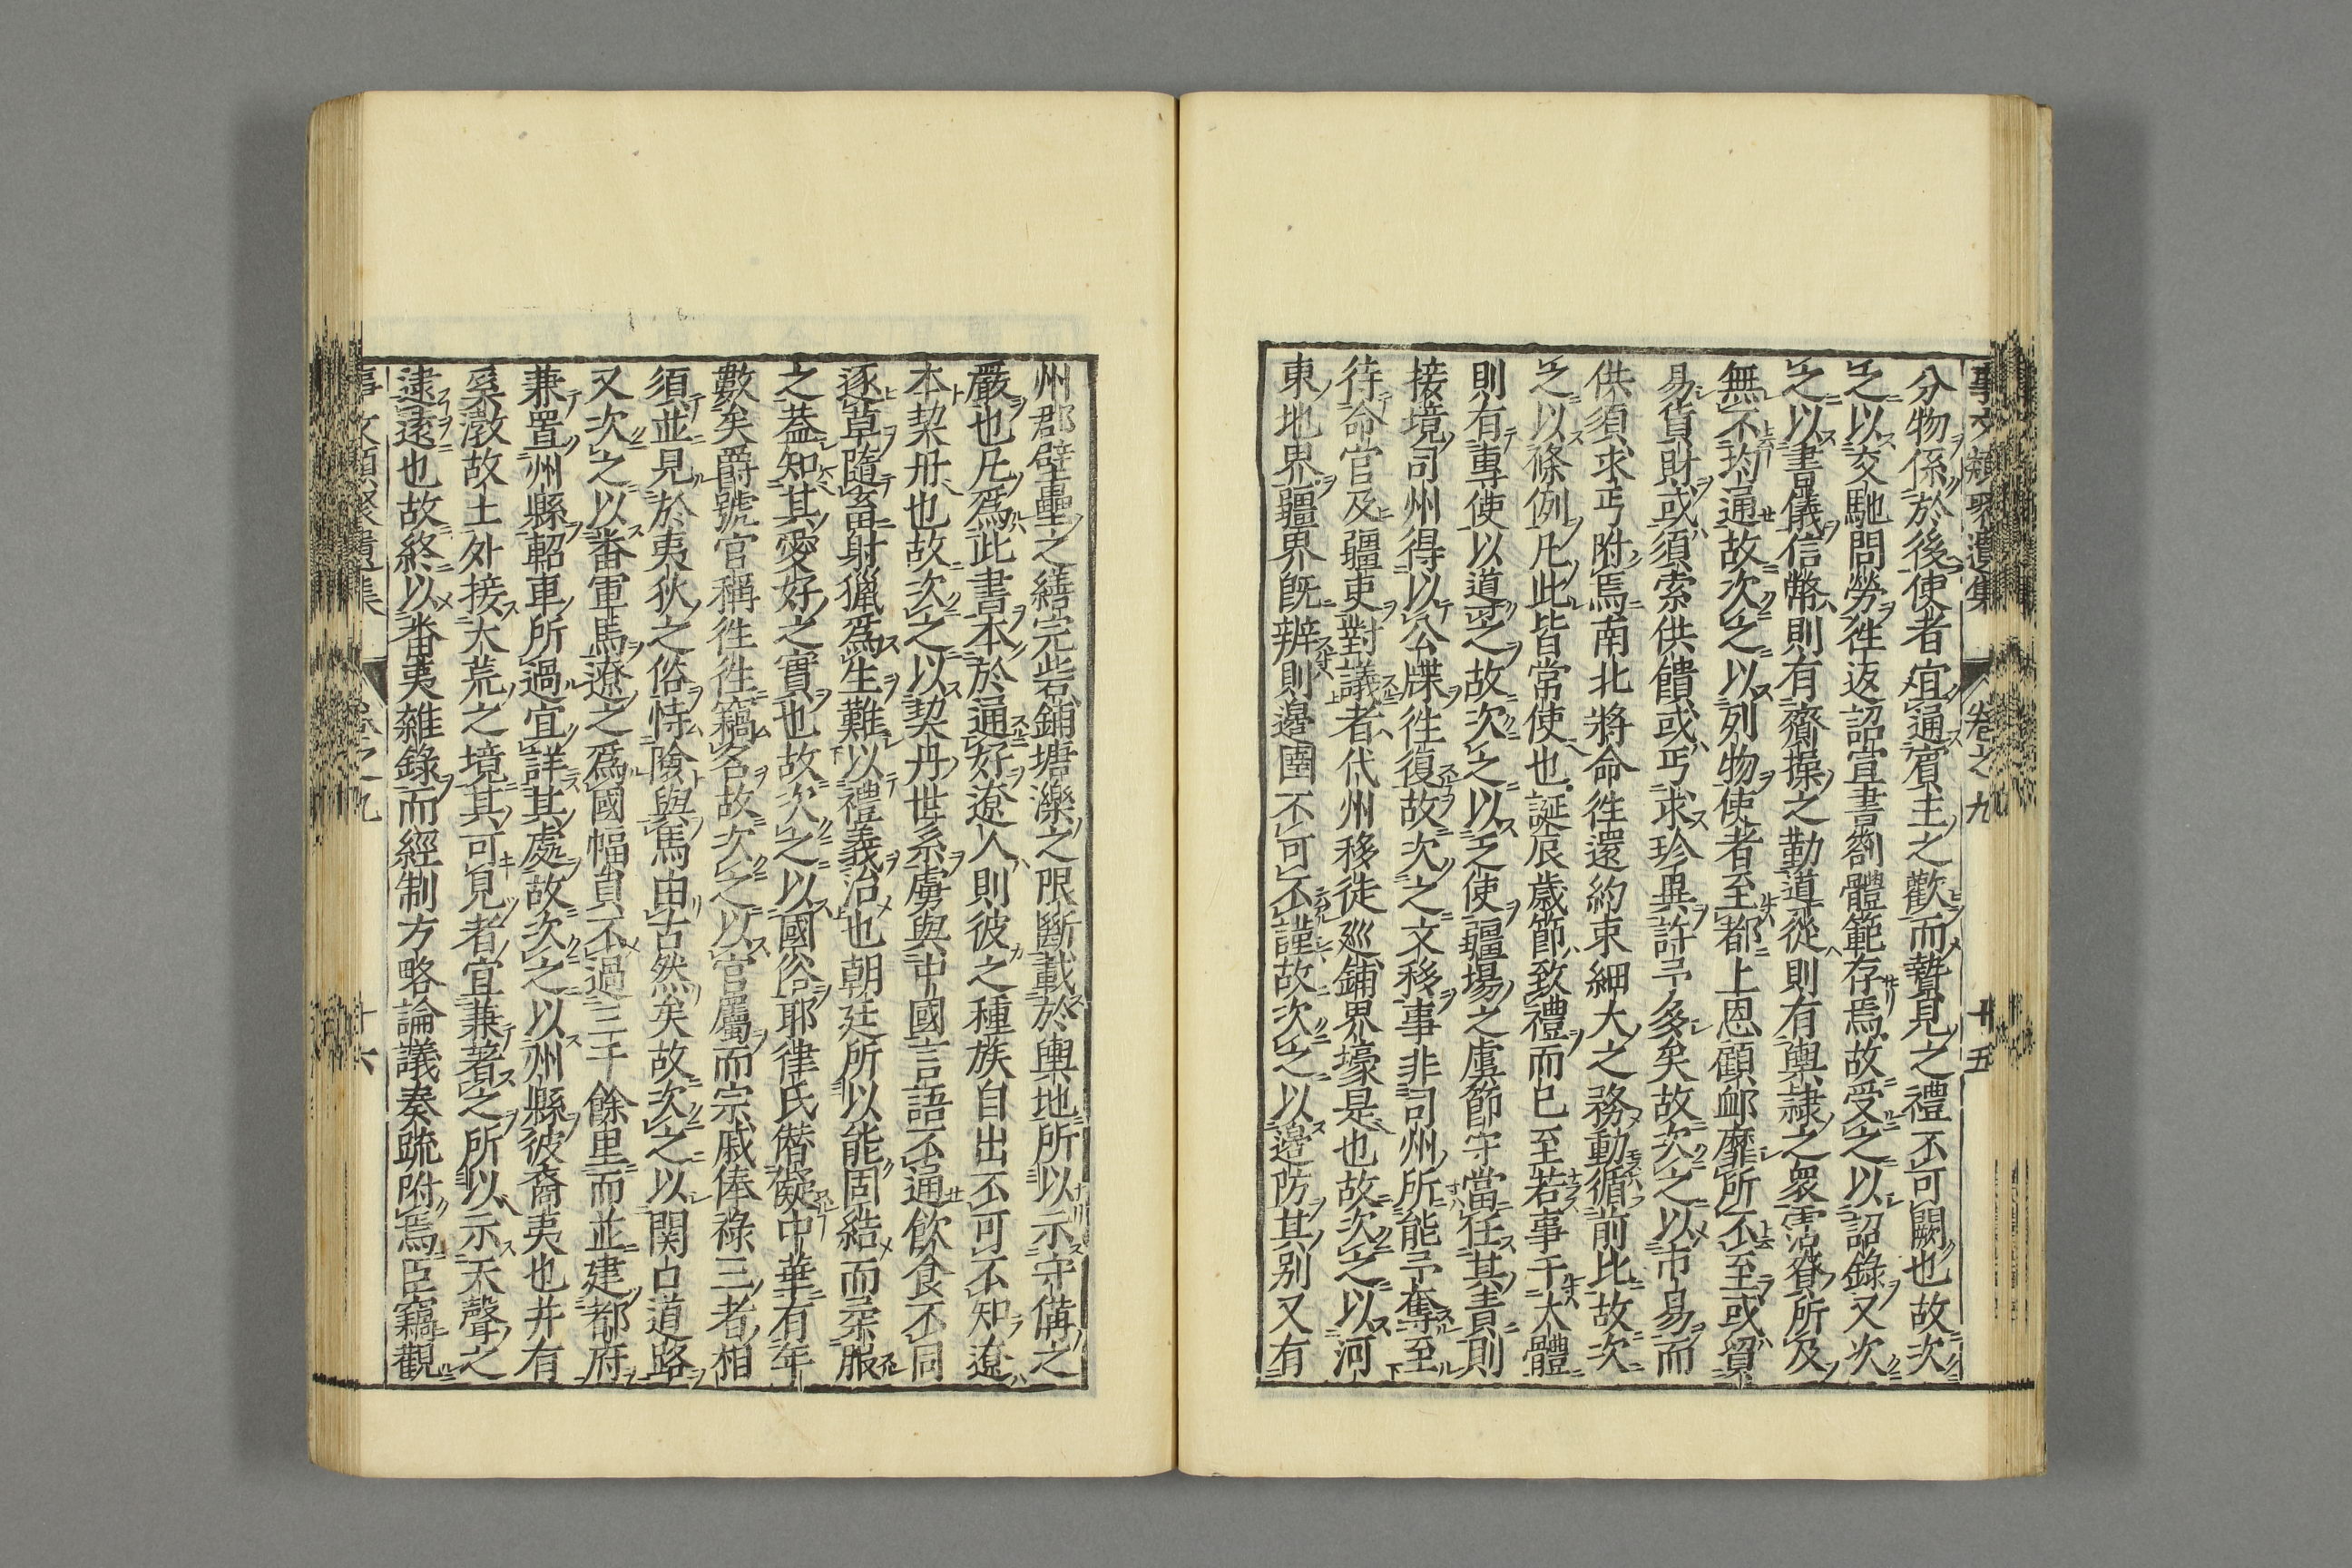 事文類聚遺集 卷之九 十五
分物係於後使者宜通賓主之歡而贄見之禮不可闕也故次
之以交馳問勞徃返詔宣書劄體範存焉故受之以詔錄又次
之以書儀信幣則有齎操之勤導從則有輿隷之衆霑賚所及
無不均通故次之以列物使者至都上恩顧衈靡所不至或貿
易貨財或須索供饋或丐求珍異許予多矣故次之以市易而
供須求丐附焉南北將命徃還約束細大之務動循前比故次
之以條例凡此皆常使也誕辰歳節致禮而已至若事干大體
則有專使以道之故次之以泛使疆場之虞節守當任其責則
接境司州得以公牒徃復故次之文移事非司州所能予奪至
待命官及疆吏對議者代州移徙巡鋪界壕是也故次之以河
東地界疆界旣辨則邊圉不可不謹故次之以邊防其別又有
州郡壁壘之繕完砦鋪塘濼之限斷載於輿地所以示守備之
嚴也凡爲此書本於通好遼人則彼之種族自出不可不知遼
本契丹也故次之以契丹世系虜與中國言語不通飲食不同
逐草隨畜射獵爲生難以禮義治也朝廷所以能固結而柔服
之蓋知其愛好之實也故次之以國俗耶律氏僣擬中華有年
數矣爵號官稱徃徃竊名故次之以官屬而宗戚俸祿三者相
須並見於夷狄之俗恃險與馬由古然矣故次之以関口道路
又次之以番軍馬遼之爲國幅員不過三千餘里而並建都府
兼置州縣軺車所過宜詳其處故次之以州縣彼裔夷也并有
奚渤故土外接大荒之境其可見者宜兼著之所以示天聲之
逮遠也故終以番夷雜錄而經制方略論議奏䟽附焉臣竊觀
事文類聚遺集 卷之九 十六